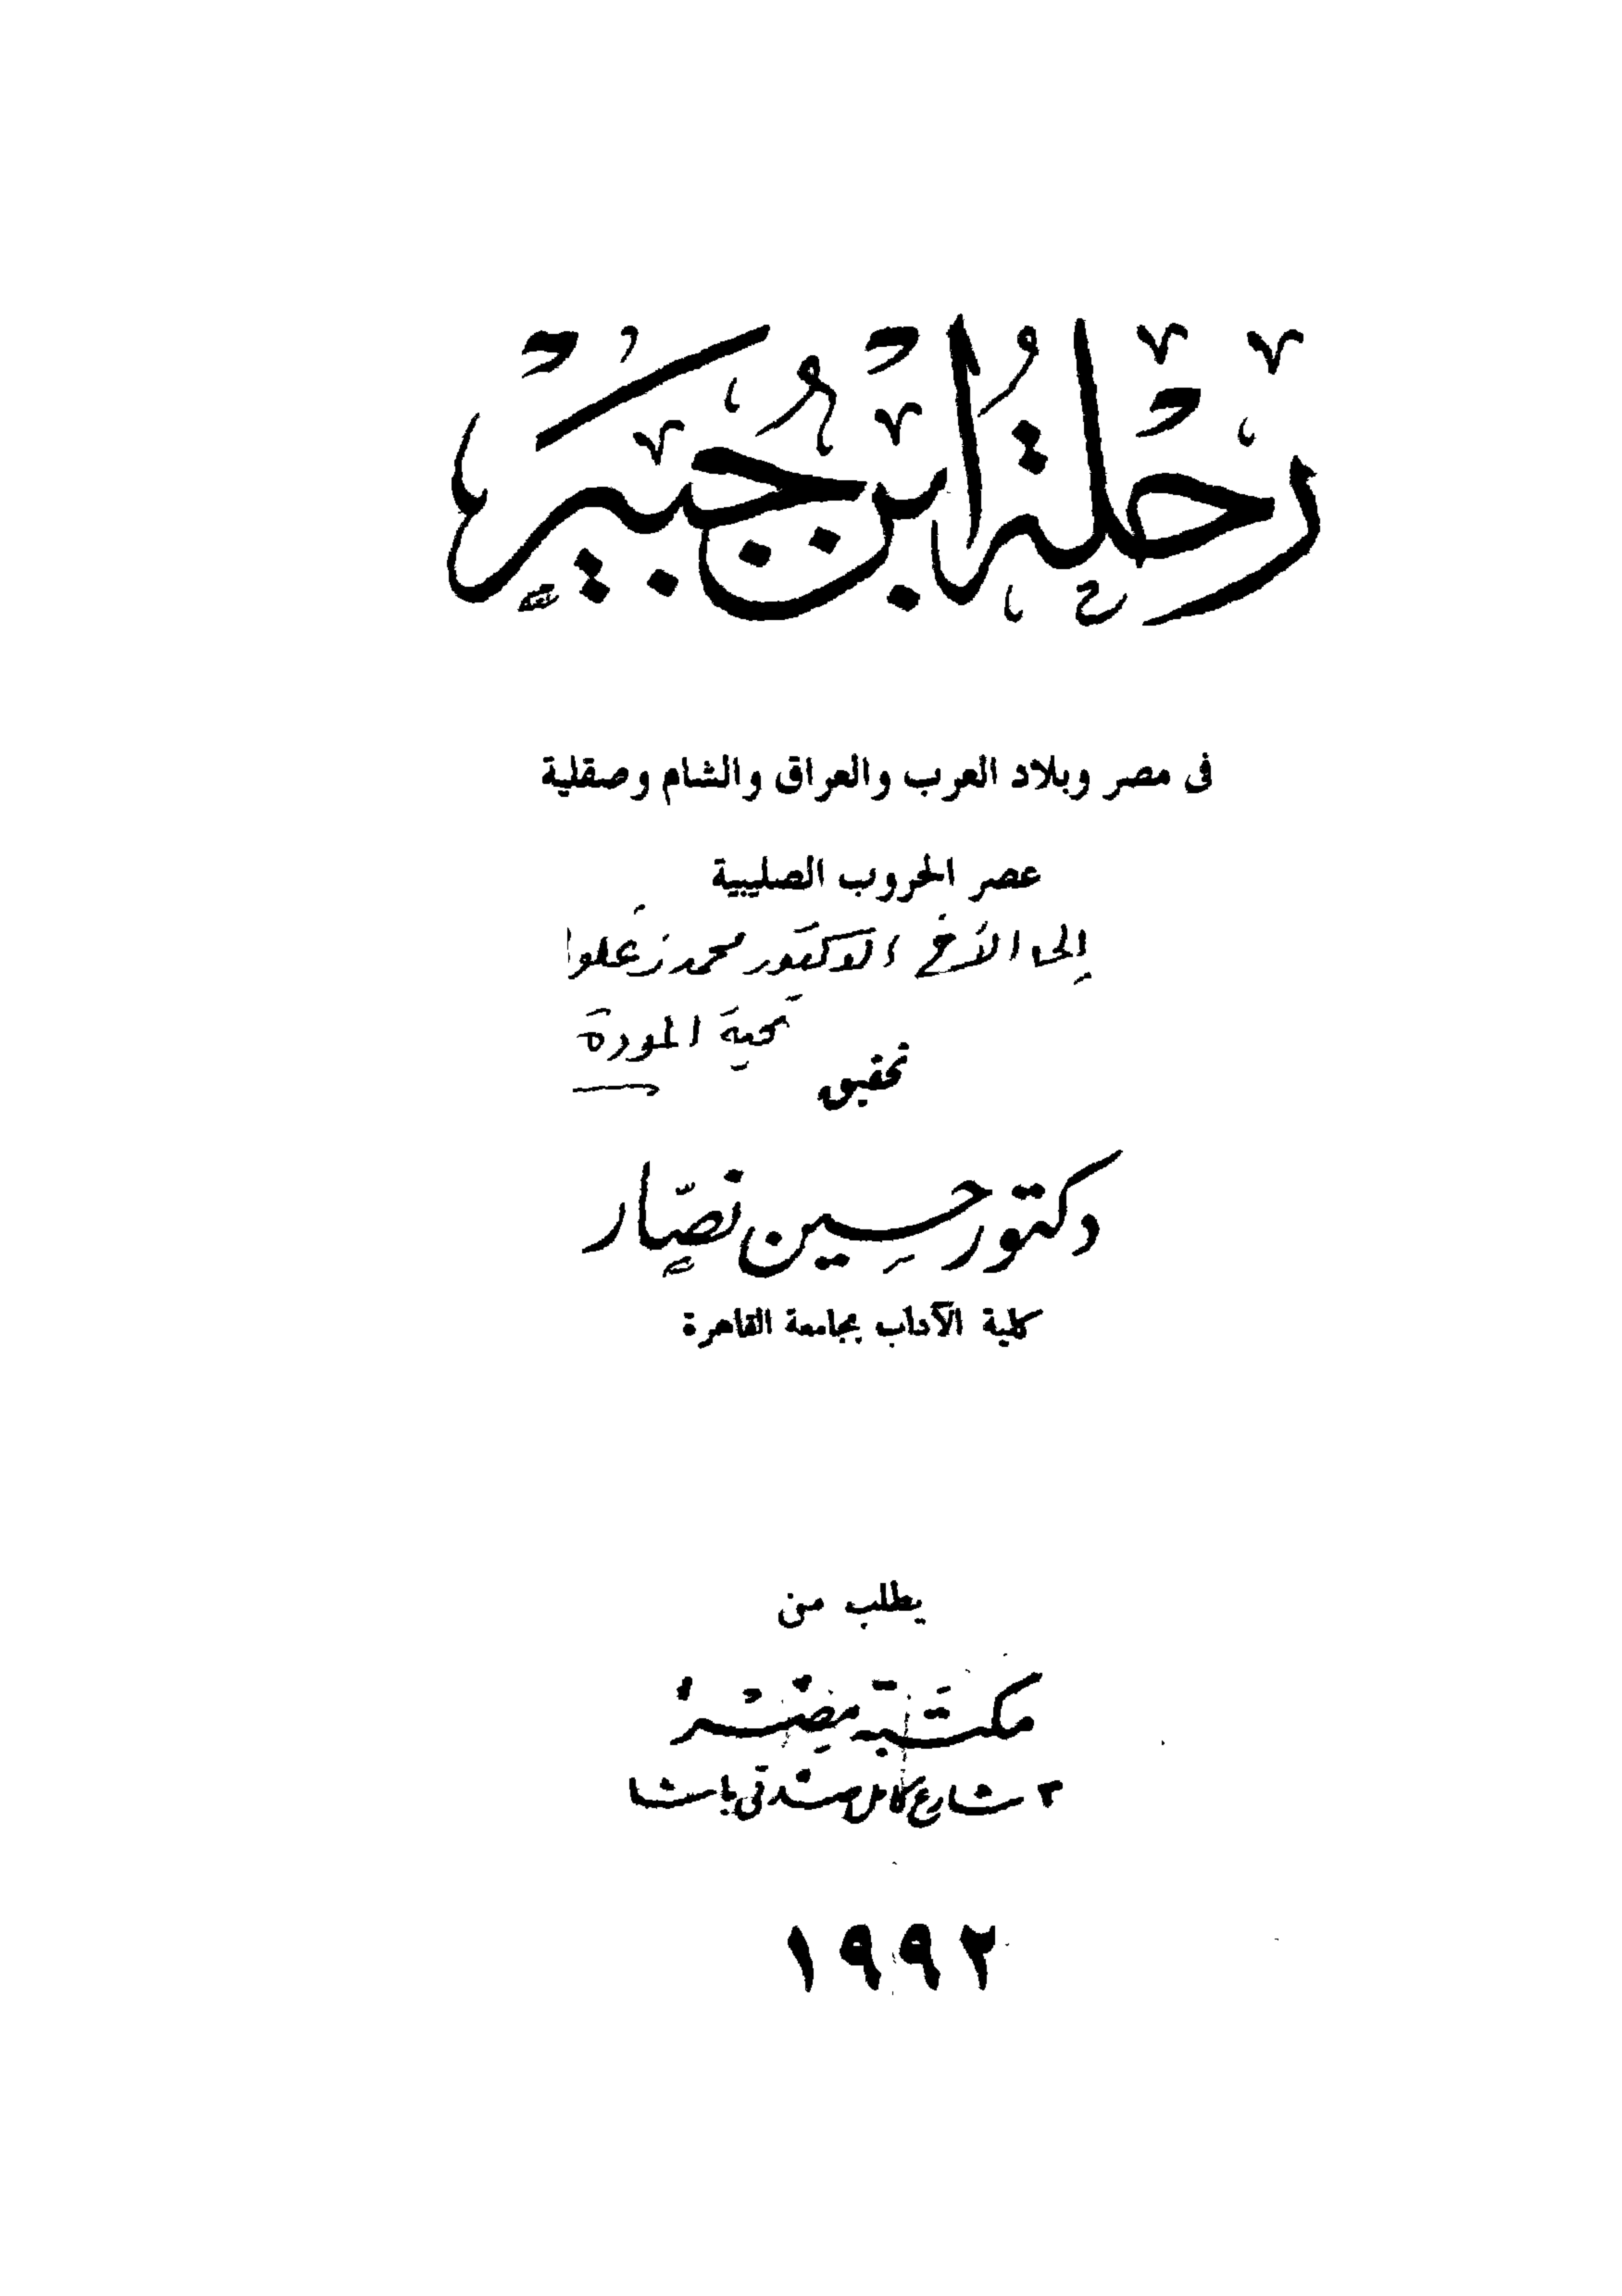 رحلة ابن جبير
فى مصر وبلاد العرب والعراق والشام وصقلية
عصر الحروب الصليبية
إلى الأخ الدكتور محمد زغلول
تحية المودة
تحقيق
دكتور حسين نصّار
كلية الآداب بجامعة القاهرة
يطلب من
مكتبة مصر
٣ شارع كامل صدقى باشا
١٩٩٢